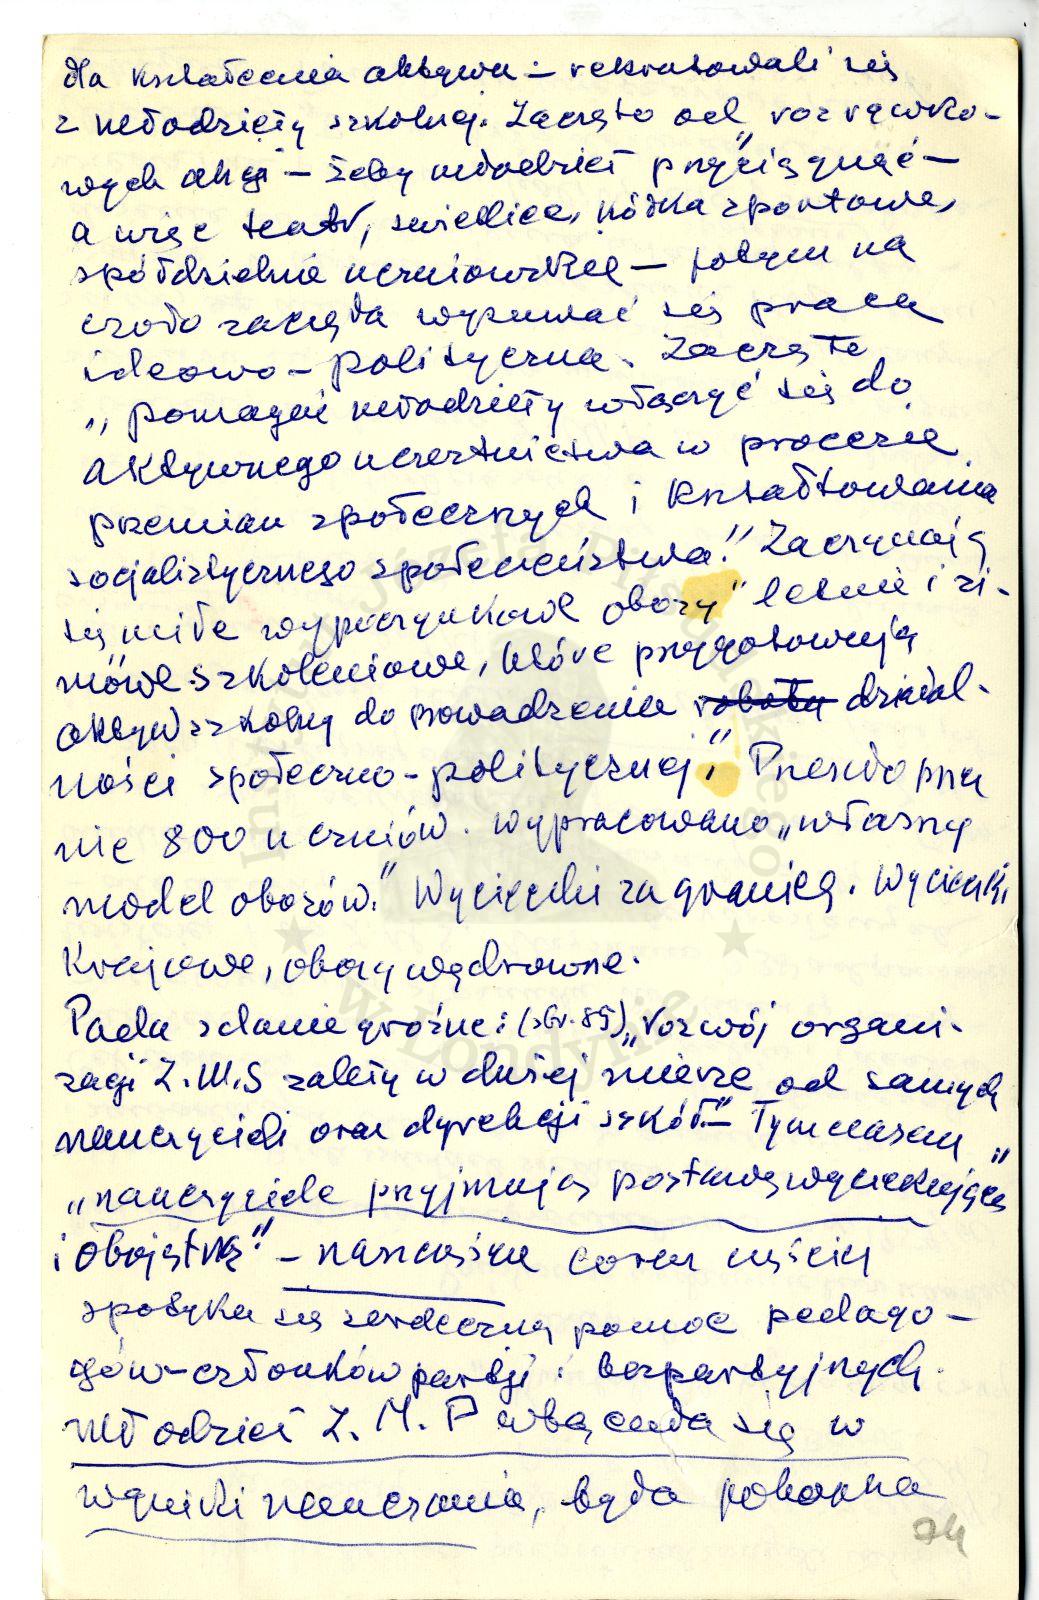 dla kształcenia aktywu – rekrutowali się
z młodzieży szkolnej. Zaczęto od „rozrywko-
wych akcji – żeby młodzież przyciągnąć –
a więc teatr, świetlice, kółka sportowe,
spółdzielnie uczniowskie – potym na
czoło zaczęła wysuwać się praca
ideowo-polityczna. Zaczęto
„pomagać młodzieży włączyć się do
aktywnego uczestnictwa w procesie
przemian społecznych i kształtowania
socjalistycznego społeczeństwa." Zaczynają
się miłe wypoczynkowe obozy" letnie i zi-
mowe szkoleniowe, które przygotowują
aktyw szkolny do prowadzenia roboty dział-
ności społeczno-politycznej." Przeszło przez
nie 800 uczniów. Wypracowano „własny
model obozów." Wycieczki za granicę. Wycieczki
krajowe, obozy wędrowne.
Pada zdanie groźne: (str. 85) „rozwój organi-
zacji Z.M.S zależy w dużej mierze od samych
nauczycieli oraz dyrekcji szkół." – Tymczasem
„nauczyciele przyjmują postawę wyczekującą"
i obojętną." – na szczęście coraz częściej
spotyka się serdeczną pomoc pedago-
gów-członków partji i bezpartyjnych.
Młodzież Z.M.P wtrącała się w
wyniki nauczania, była
74
Instytut Józefa Piłsudskiego
w Londynie